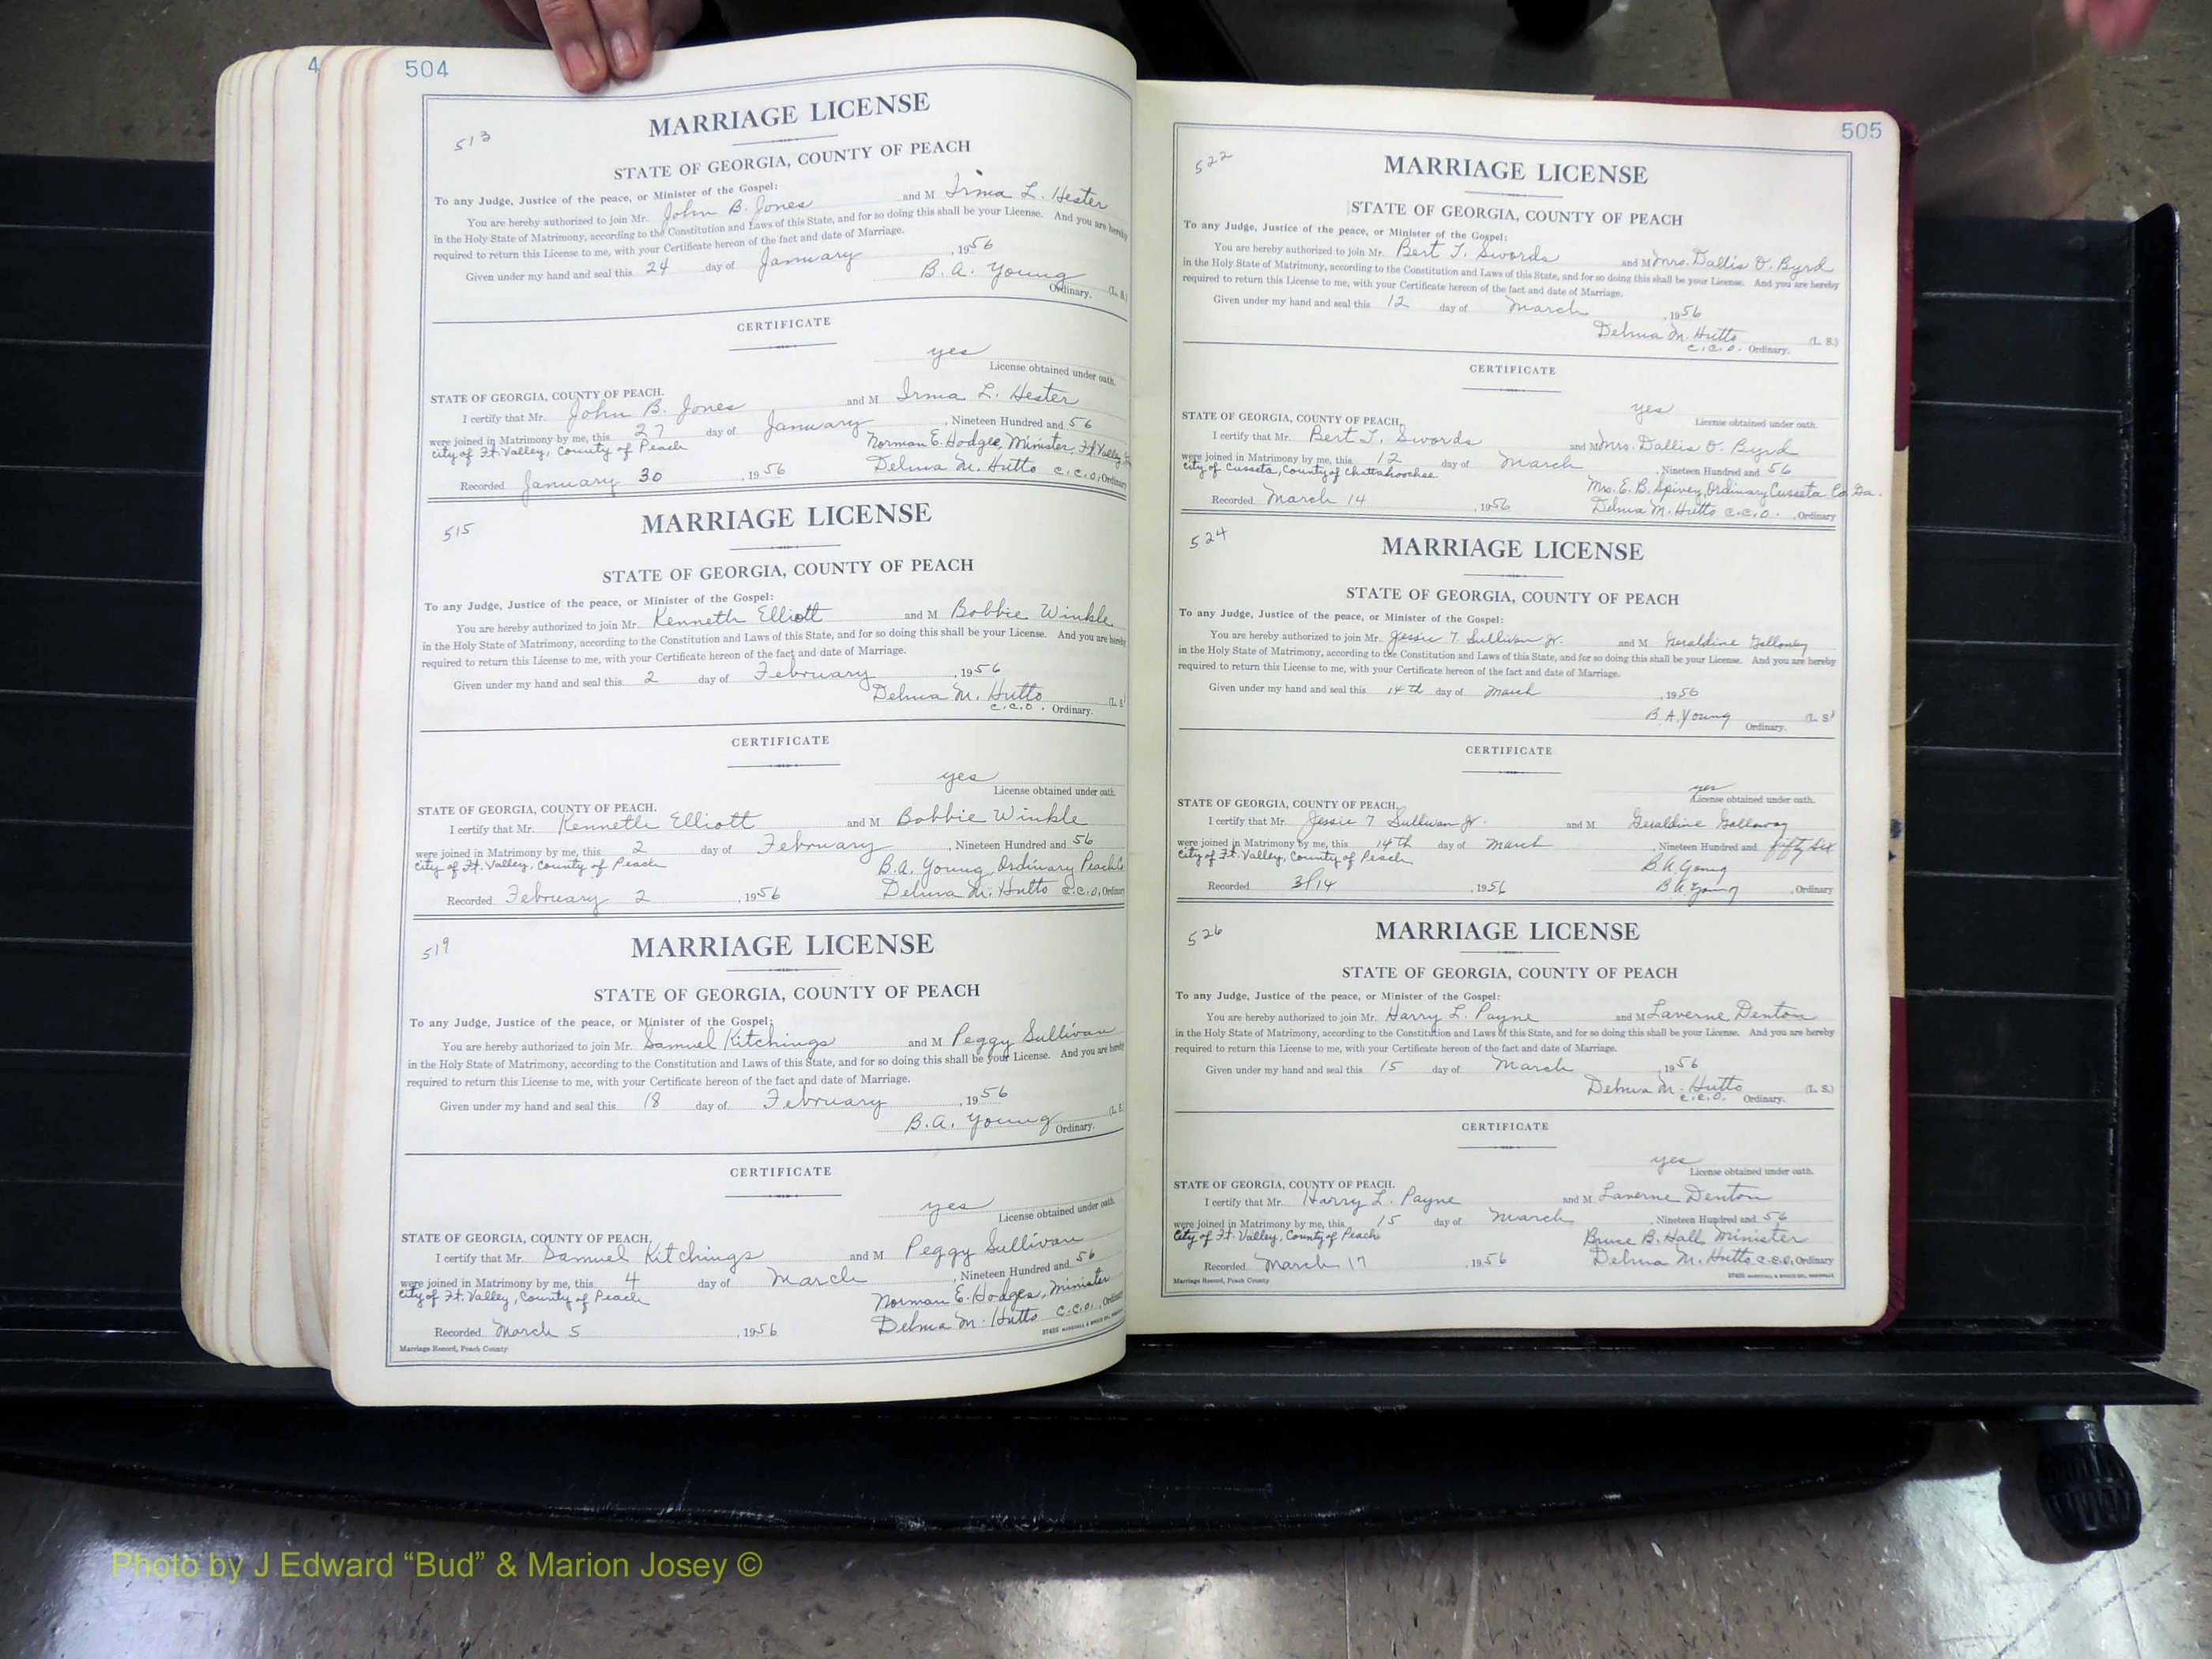 4
504
513
MARRIAGE LICENSE
STATE OF GEORGIA, COUNTY OF PEACH
To any Judge, Justice of the peace, or Minister of the Gospel:
You are hereby authorized to join Mr. John B. Jones and M Irma L. Hester
in the Holy State of Matrimony, according to the Constitution and Laws of this State, and for so doing this shall be your License. And you are hereby
required to return this License to me, with your Certificate hereon of the fact and date of Marriage.
Given under my hand and seal this 24 day of January, 1956
B. A. Young (L. S.)
Ordinary.
CERTIFICATE
yes
License obtained under oath.
STATE OF GEORGIA, COUNTY OF PEACH.
I certify that Mr. John B. Jones and M Irma L. Hester
were joined in Matrimony by me, this 27 day of January, Nineteen Hundred and 56
city of Ft. Valley, County of Peach Norman E. Hodges, Minister, Ft Valley
Recorded January 30, 1956 Delma M. Hutto c.c.o., Ordinary
515
MARRIAGE LICENSE
STATE OF GEORGIA, COUNTY OF PEACH
To any Judge, Justice of the peace, or Minister of the Gospel:
You are hereby authorized to join Mr. Kenneth Elliott and M Bobbie Winkle
in the Holy State of Matrimony, according to the Constitution and Laws of this State, and for so doing this shall be your License. And you are hereby
required to return this License to me, with your Certificate hereon of the fact and date of Marriage.
Given under my hand and seal this 2 day of February, 1956
Delma M. Hutto (L. S.)
c.c.o. Ordinary.
CERTIFICATE
yes
License obtained under oath.
STATE OF GEORGIA, COUNTY OF PEACH.
I certify that Mr. Kenneth Elliott and M Bobbie Winkle
were joined in Matrimony by me, this 2 day of February, Nineteen Hundred and 56
city of Ft. Valley, County of Peach B.A. Young, Ordinary Peach Co
Recorded February 2, 1956 Delma M. Hutto c.c.o., Ordinary
519
MARRIAGE LICENSE
STATE OF GEORGIA, COUNTY OF PEACH
To any Judge, Justice of the peace, or Minister of the Gospel:
You are hereby authorized to join Mr. Samuel Kitchings and M Peggy Sullivan
in the Holy State of Matrimony, according to the Constitution and Laws of this State, and for so doing this shall be your License. And you are hereby
required to return this License to me, with your Certificate hereon of the fact and date of Marriage.
Given under my hand and seal this 18 day of February, 1956
B.A. Young (L. S.)
Ordinary.
CERTIFICATE
yes
License obtained under oath.
STATE OF GEORGIA, COUNTY OF PEACH.
I certify that Mr. Samuel Kitchings and M Peggy Sullivan
were joined in Matrimony by me, this 4 day of March, Nineteen Hundred and 56
city of Ft. Valley, County of Peach Norman E. Hodges, Minister
Recorded March 5, 1956 Delma M. Hutto c.c.o., Ordinary
Marriage Record, Peach County
505
522
MARRIAGE LICENSE
STATE OF GEORGIA, COUNTY OF PEACH
To any Judge, Justice of the peace, or Minister of the Gospel:
You are hereby authorized to join Mr. Bert T. Swords and M Mrs. Dallis O. Byrd
in the Holy State of Matrimony, according to the Constitution and Laws of this State, and for so doing this shall be your License. And you are hereby
required to return this License to me, with your Certificate hereon of the fact and date of Marriage.
Given under my hand and seal this 12 day of March, 1956
Delma M. Hutto (L. S.)
c.c.o. Ordinary.
CERTIFICATE
yes
License obtained under oath.
STATE OF GEORGIA, COUNTY OF PEACH.
I certify that Mr. Bert T. Swords and M Mrs. Dallis O. Byrd
were joined in Matrimony by me, this 12 day of March, Nineteen Hundred and 56
city of Cusseta, County of Chattahoochee Mrs. E. B. Spivey, Ordinary Cusseta Co Ga.
Recorded March 14, 1956 Delma M. Hutto c.c.o., Ordinary
524
MARRIAGE LICENSE
STATE OF GEORGIA, COUNTY OF PEACH
To any Judge, Justice of the peace, or Minister of the Gospel:
You are hereby authorized to join Mr. Jessie T. Sullivan Jr. and M Geraldine Galloway
in the Holy State of Matrimony, according to the Constitution and Laws of this State, and for so doing this shall be your License. And you are hereby
required to return this License to me, with your Certificate hereon of the fact and date of Marriage.
Given under my hand and seal this 14th day of March, 1956
B A. Young (L. S.)
Ordinary.
CERTIFICATE
yes
License obtained under oath.
STATE OF GEORGIA, COUNTY OF PEACH.
I certify that Mr. Jessie T Sullivan Jr. and M Geraldine Galloway
were joined in Matrimony by me, this 14th day of March, Nineteen Hundred and fifty six
city of Ft. Valley, County of Peach B A Young
Recorded 3/14, 1956 B A Young, Ordinary
526
MARRIAGE LICENSE
STATE OF GEORGIA, COUNTY OF PEACH
To any Judge, Justice of the peace, or Minister of the Gospel:
You are hereby authorized to join Mr. Harry L. Payne and M Laverne Denton
in the Holy State of Matrimony, according to the Constitution and Laws of this State, and for so doing this shall be your License. And you are hereby
required to return this License to me, with your Certificate hereon of the fact and date of Marriage.
Given under my hand and seal this 15 day of March, 1956
Delma M. Hutto (L. S.)
c.c.o. Ordinary.
CERTIFICATE
yes
License obtained under oath.
STATE OF GEORGIA, COUNTY OF PEACH.
I certify that Mr. Harry L. Payne and M Laverne Denton
were joined in Matrimony by me, this 15 day of March, Nineteen Hundred and 56
city of Ft. Valley, County of Peach Bruce B. Hall Minister
Recorded March 17, 1956 Delma M. Hutto c.c.o. Ordinary
Marriage Record, Peach County
Photo by J Edward “Bud” & Marion Josey ©